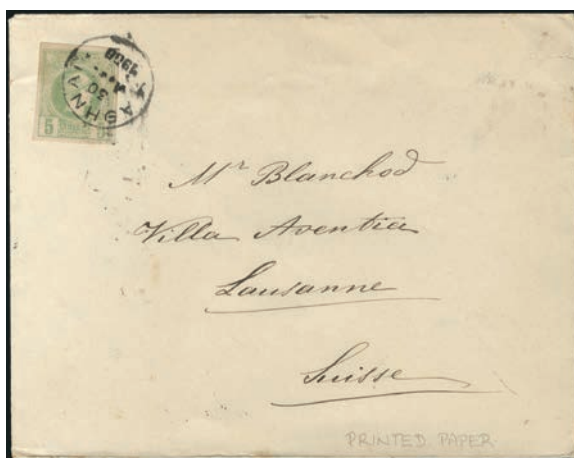 ΑΘΗΝΑΙ
30
1900
5
Mr Blanchod
Villa Aventica
Lausanne
Suisse
PRINTED PAPER